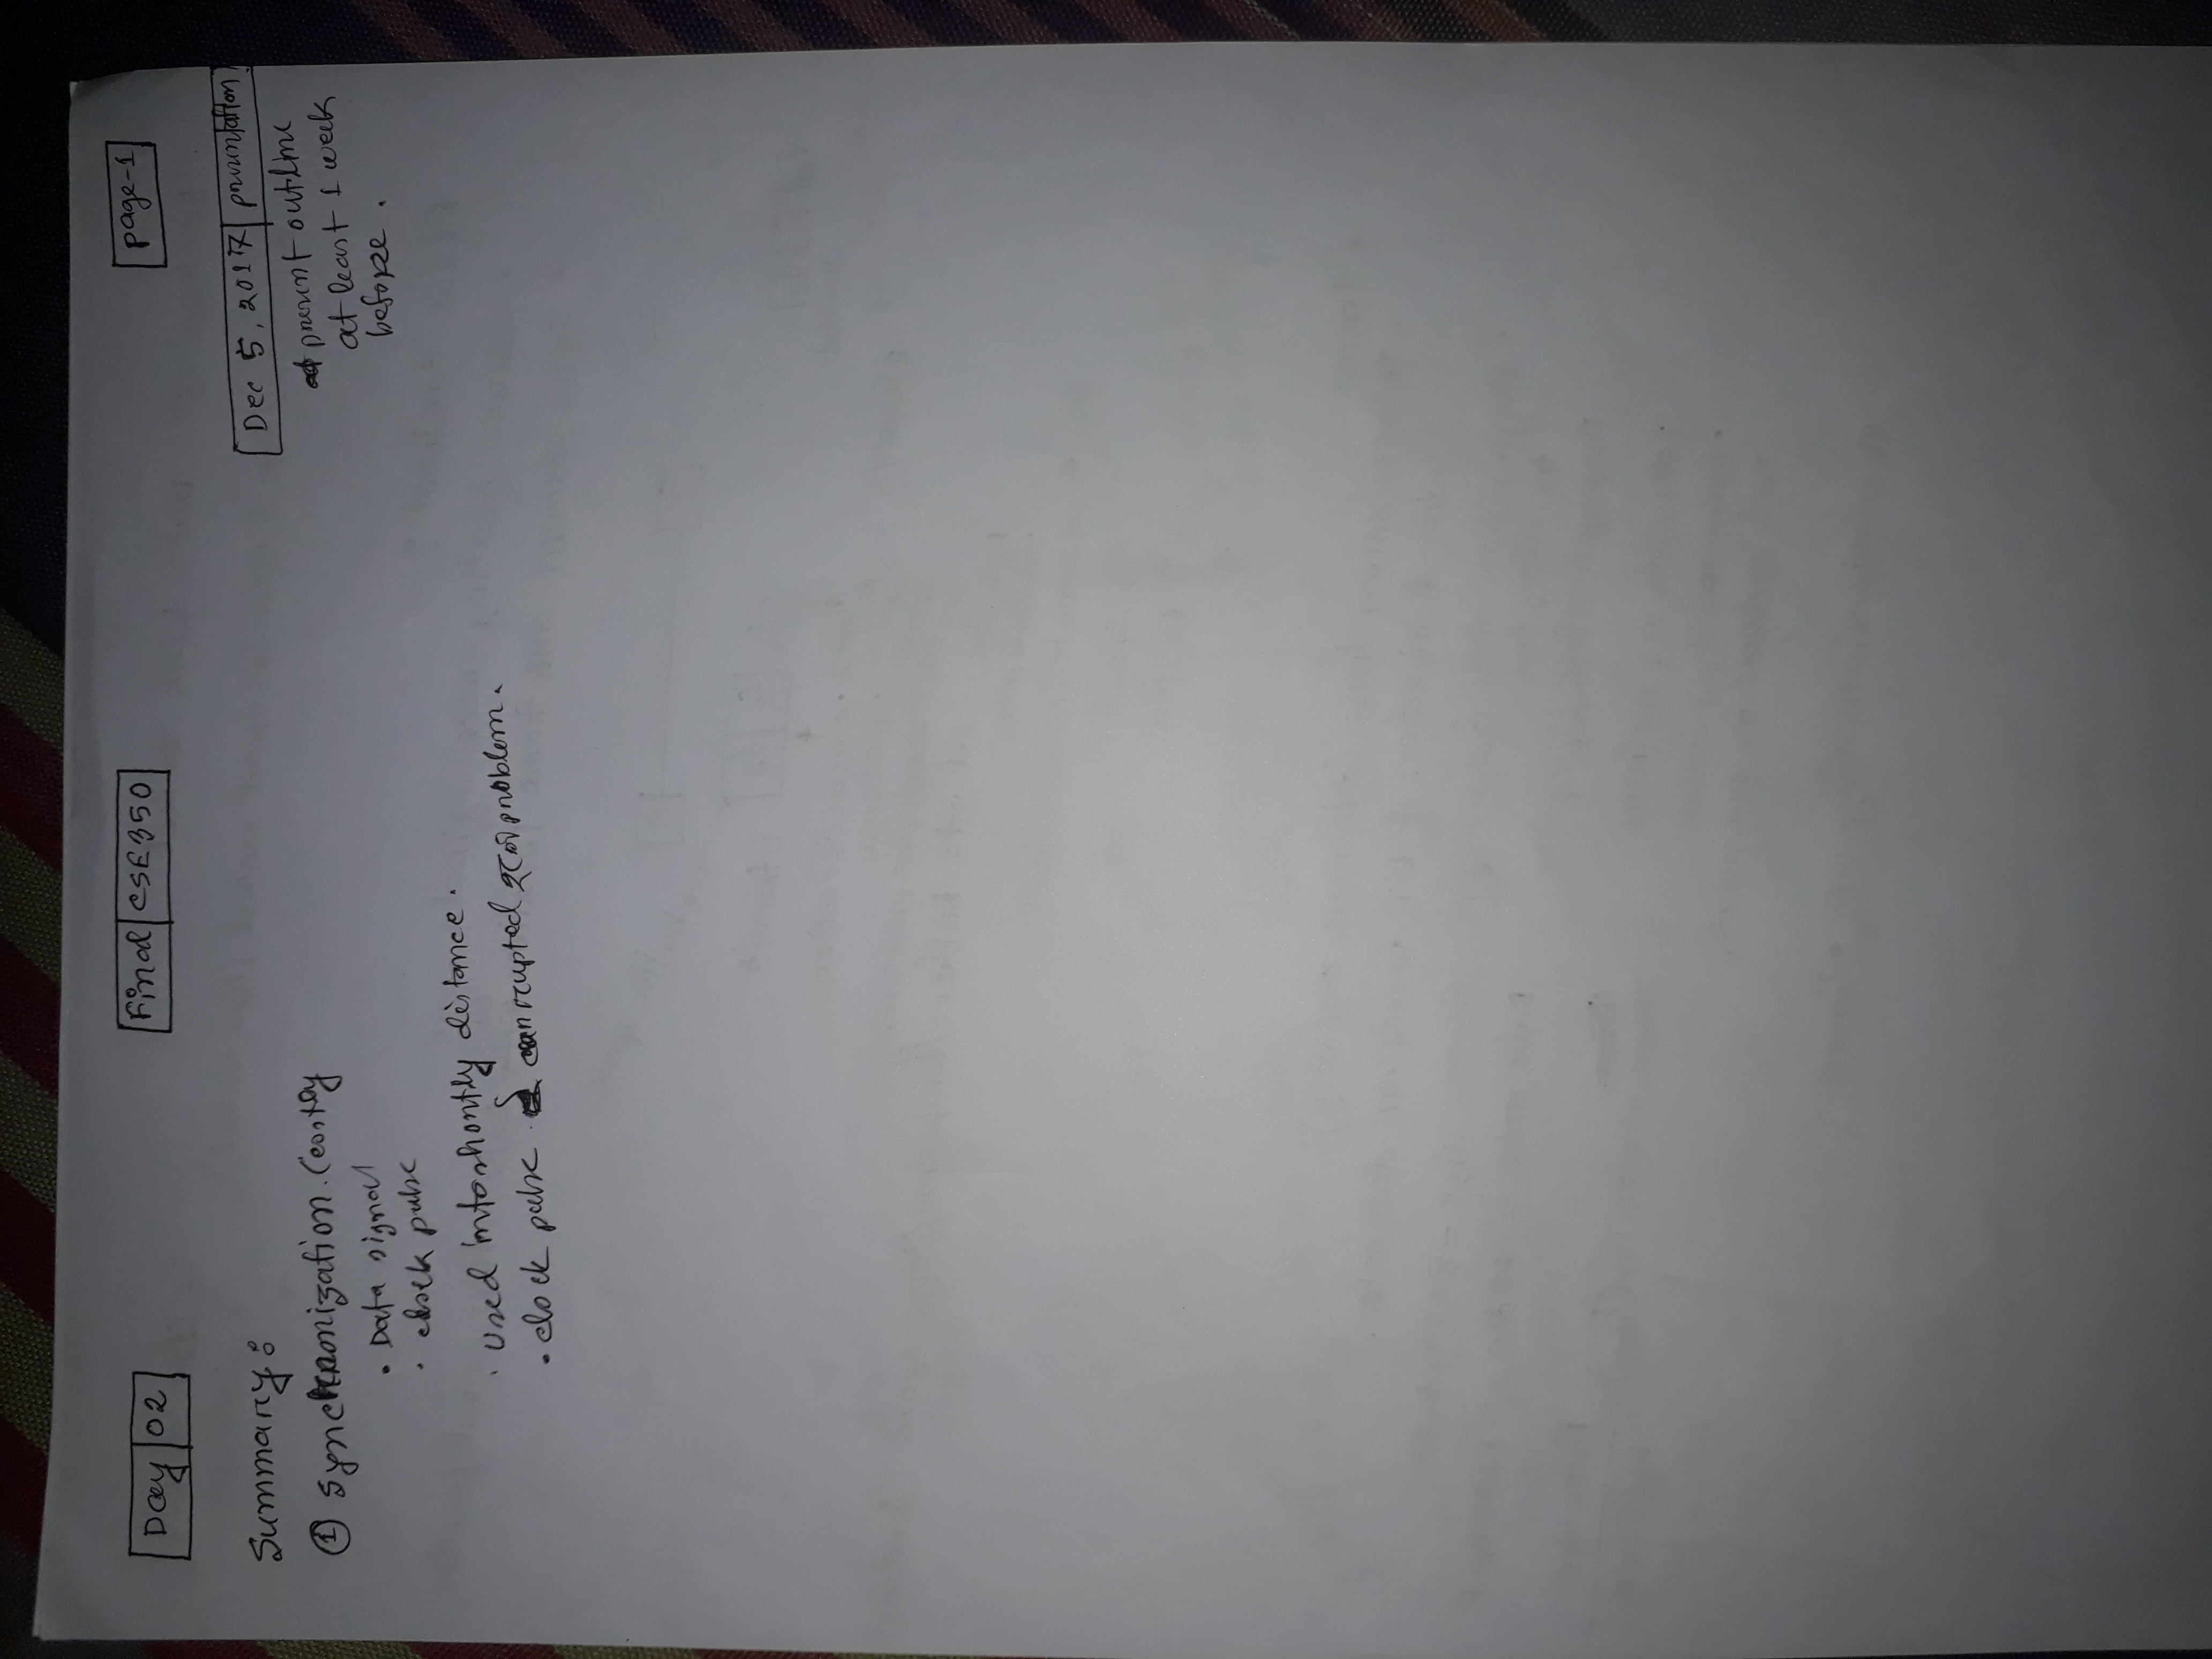 Day 02
Final CSE350
page-1
Dec 5, 2017 presentation
present outline
at least 1 week
before.
Summary:
① Synchronization. (costly
• Data signal
• clock pulse
• Used into shortly distance.
• clock pulse corrupted হলে problem.